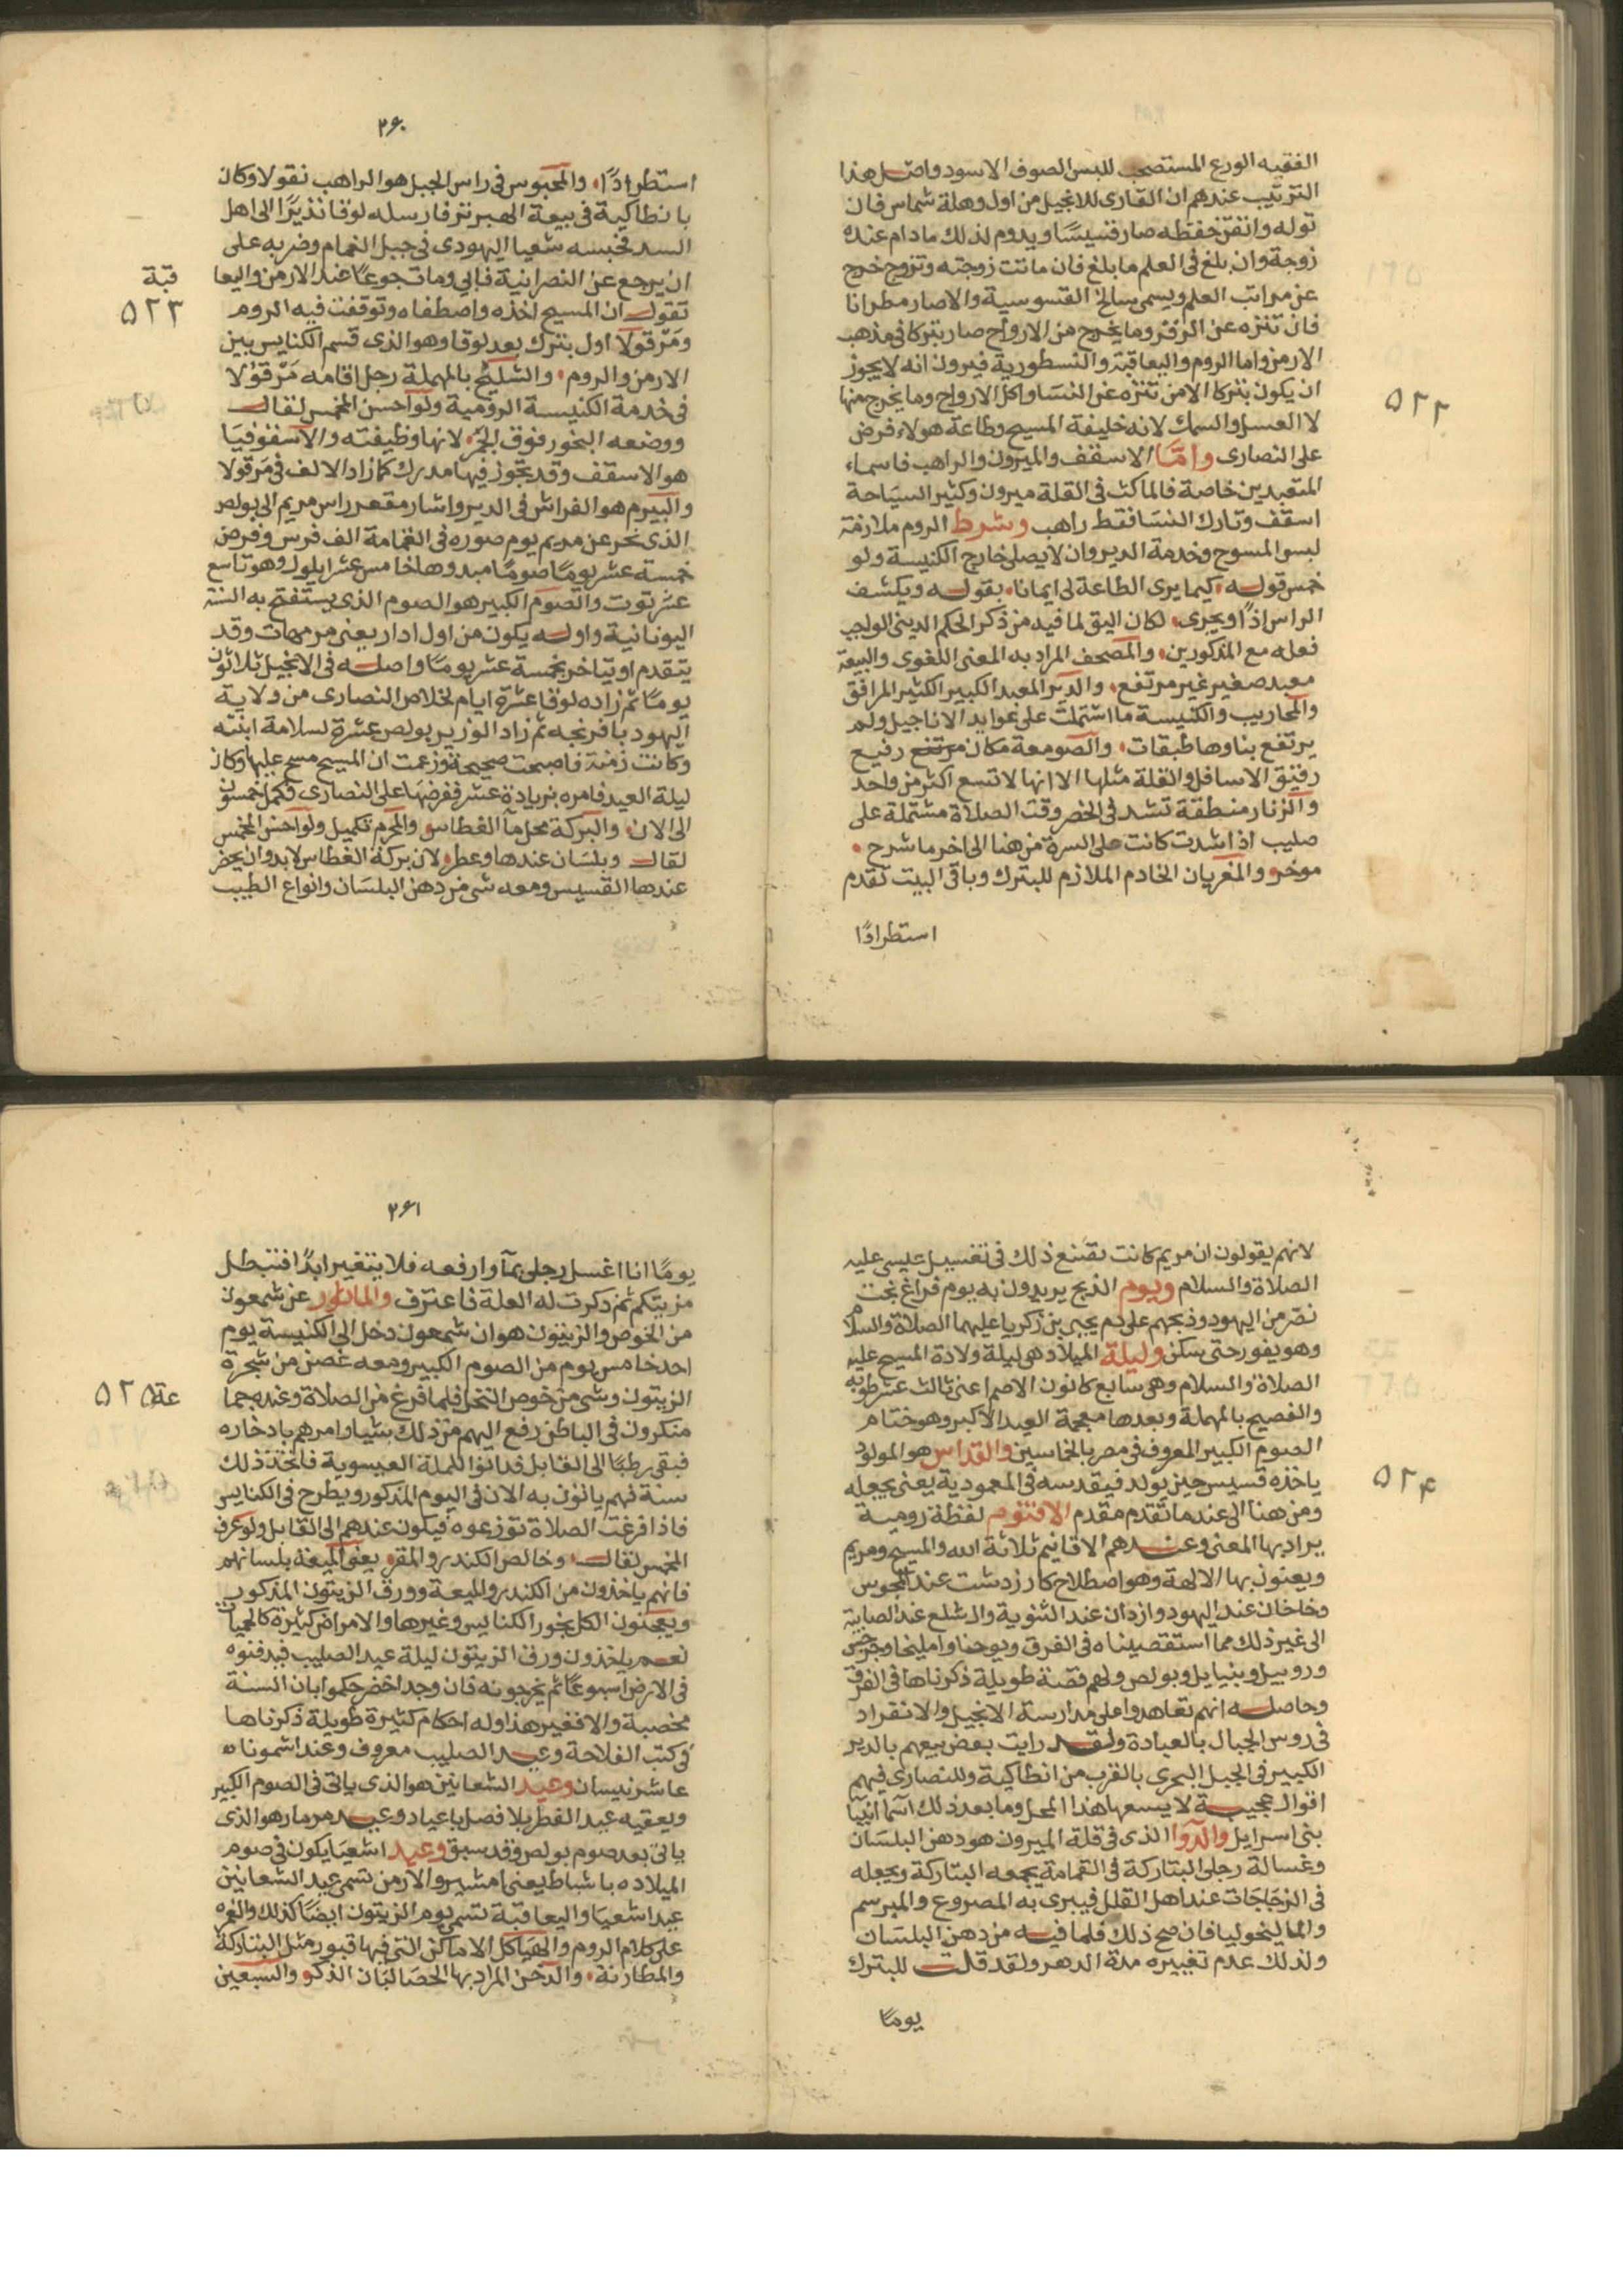 الفقيه الورع المستصحب للبس الصوف الاسود واصل هذا
الترتيب عندهم ان القارى للانجيل من اول وهلة شماس فان
توله واتقن حفظه صار قسيسًا ويدوم لذلك مادام عنده
زوجة وان بلغ فى العلم ما بلغ فان ماتت زوجته وتزوج خرج
عن مراتب العلم ويسمى سالخ القسوسية والاصار مطرانا
فان تنزه عن الزفر وما يخرج من الارواح صار بتركا فى مذهب
الارمن واما الروم واليعاقبة والنسطورية فيرون انه لايجوز
ان يكون بتركا الا من تنزه عن النسا واكل الارواح وما يخرج منها
٥٢٢
لا العسل والسمك لانه خليفة المسيح وطاعة هولاء فرض
على النصارى وامّا الاسقف والميرون والراهب فاسماء
المتعبدين خاصة فالماكث فى القلة ميرون وكثير السياحة
اسقف وتارك النسا فقط راهب وشرط الروم ملازمة
لبس المسوح وخدمة الدير وان لا يصلى خارج الكنيسة ولو
خمس قوله كيما يرى الطاعة لى ايمانا بقوله ويكشف
الراس اذًا ويجرى لكان اليق لما فيه من ذكر الحكم الدينى الواجب
فعله مع المذكورين والمصحف المراد به المعنى اللغوى والبيعة
معبد صغير غير مرتفع والدير المعبد الكبير الكثير المرافق
والمحاريب والكنيسة ما اشتملت على عوايد الاناجيل ولم
يرتفع بناوها طبقات والصومعة مكان مرتفع رفيع
رقيق الاسافل والقلة مثلها الا انها لاتسع اكثر من واحد
والزنار منطقة تشد فى الخصر وقت الصلاة مشتملة على
صليب اذا شدت كانت على السرة من هنا الى اخر ما شرح
موخر والمغريان الخادم الملازم للبترك وباقى البيت تقدم
استطرادًا
٢٦٠
استطرادًا والمحبوس فى راس الجبل هو الراهب نقولا وكان
بانطاكية فى بيعة الهبر نز فارسله لوقا نذيرًا الى اهل
السد فحبسه شعيا اليهودى فى جبل الغمام وضربه على
ان يرجع عن النصرانية فابى ومات جوعًا عند الارمن واليعا
قبة
٥٢٣
تقول ان المسيح اخذه واصطفاه وتوقفت فيه الروم
ومَرْقولا اول بترك بعد لوقا وهو الذى قسم الكنايس بين
الارمن والروم والشليخ بالمهملة رجل اقامه مَرْقولا
فى خدمة الكنيسة الرومية ولو احسن المخمس لقال
ووضعه البخور فوق الجمر لانها وظيفته والاسقوفيَا
هو الاسقف وقد يتجوز فيها مدرك كما زاد الالف فى مَرقولا
والبيرم هو الفراش فى الدير واشار مقعر راس مريم الى بولص
الذى نحر عن مريم يوم صوره فى القمامة الف فرس وفرض
خمسة عشر يومًا صومًا مبدوها خامس عشر ايلول وهو تاسع
عشر توت والصوم الكبير هو الصوم الذى يستفتح به السنة
اليونانية واوله يكون من اول ادار يعنى مرمهات وقد
يتقدم او يتاخر بخمسة عشر يومًا واصله فى الانجيل ثلاثون
يومًا ثم زاده لوقا عشرة ايام لخلاص النصارى من ولاية
اليهود بافرنجه ثم زاد الوزير بولص عشرة لسلامة ابنته
وكانت زمنة فاصبحت صحيحة وزعمت ان المسيح مسح عليها وكان
ليلة العيد فامره بزيادة عشر ففرضها على النصارى فكمل خمسون
الى الان والبركة محل مآ الغطاس والمحرم تكميل ولو احسن المخمس
لقال وبلسَان عندها وعطر لان بركة الغطاس لابد وان يحضر
عندها القسيس ومعه شى من دهن البلسَان وانواع الطيب
لانهم يقولون ان مريم كانت تصنع ذلك فى تغسيل عيسى عليه
الصلاة والسلام ويوم الذبح يريدون به يوم فراغ بخت
نصّر من اليهود وذبحهم على دم يحيى بن زكريا عليهما الصلاة والسلام
وهو يفور حتى سكن وليلة الميلاد هى ليلة ولادة المسيح عليه
الصلاة والسلام وهى سابع كانون الاصم اعنى ثالث عشر طوبه
والفصيح بالمهملة وبعدها معجمة العيد الاكبر وهو ختام
الصوم الكبير المعروف فى مصر بالخماسين والقداس هو المولود
ياخذه قسيس حين يولد فيقدسه فى المعمودية يعنى يجعله
٥٢٤
ومن هنا الى عند ما تقدم مقدم الاقنوم لفظة رومية
يراد بها المعنى وعندهم الاقانيم ثلاثة الله والمسيح ومريم
ويعنون بها الالهة وهو اصطلاح كازردشت عند المجوس
وخاخان عند اليهود وازدان عند الثنوية والدشلع عند الصابية
الى غير ذلك مما استقصيناه فى الفرق ويوحنا واملیخا وجرجس
وروبيل وبنيايل وبولص ولهم قصة طويلة ذكرناها فى الفرق
وحاصله انهم تعاهدوا على مدارسة الانجيل والانفراد
فى روس الجبال بالعبادة ولقد رايت بعض بيعهم بالدير
الكبير فى الجبل البحرى بالقرب من انطاكية وللنصارى فيهم
اقوال عجيبة لا يسعها هذا المحل وما بعد ذلك اسمآ انبيآ
بنى اسرايل والدوا الذى فى قلة الميرون هو دهن البلسَان
وغسالة رجلى البتاركة فى القمامة يجمعه البتاركة ويجعله
فى الزجَاجَات عند اهل القلل فيبرى به المصروع والمبرسم
والماليخوليا فان صح ذلك فلما فيه من دهن البلسَان
ولذلك عدم تغييره مدة الدهر ولقد قلت للبترك
يومًا
٢٦١
يومًا انا اغسل رجلى بمآ وارفعه فلا يتغير ابدًا افتبطل
مزيتكم ثم ذكرت له العلة فاعترف والماثور عن شمعون
من الخوص والزيتون هو ان شمعون دخل الى الكنيسة يوم
احد خامس يوم من الصوم الكبير ومعه غصن من شجرة
الزيتون وشى من خوص النخل فلما فرغ من الصلاة وعنده جما
عة
٥٢٥
منكرون فى الباطن رفع اليهم من ذلك شيا وامرهم بادخاره
فبقى رطبًا الى القابل فدانوا للملة العيسوية فاتخذ ذلك
سنة فهم ياتون به الان فى اليوم المذكور ويطرح فى الكنايس
فاذا فرغت الصلاة توزعوه فيكون عندهم الى القابل ولو عرف
المخمس لقال وخالص الكندر والمقر يعنى الميعة بلسانهم
فانهم ياخذون من الكندر والميعة وورق الزيتون المذكور
ويعجنون الكل بخور الكنايس وغيرها والامراض كثيرة كالحميات
نعم ياخذون ورق الزيتون ليلة عيد الصليب فيدفنوه
فى الارض اسبوعًا ثم يخرجونه فان وجد اخضر حكموا بان السنة
مخصبة والا فغير هذا وله احكام كثيرة طويلة ذكرناها
فى كتب الفلاحة وعيد الصليب معروف وعند اشموناه
عاشر نيسان وعيد الشعانين هو الذى ياتى فى الصوم الكبير
ويعقبه عيد الفطر بلا فصل باعياد وعيد مرمار هو الذى
ياتى بعد صوم بولص وقد سبق وعيد اشعيَا يكون فى صوم
الميلاد ه باشباط يعنى امشير والارمن تسمى عيد الشعانين
عيد اشعيَا واليعاقبة تسمى يوم الزيتون ايضًا كذلك والنمره
على كلام الروم والهياكل الاماكن التى فيها قبور مثل البتاركة
والمطارنة والدخن المراد بها الحصَا لبّان الذكر والسبعين